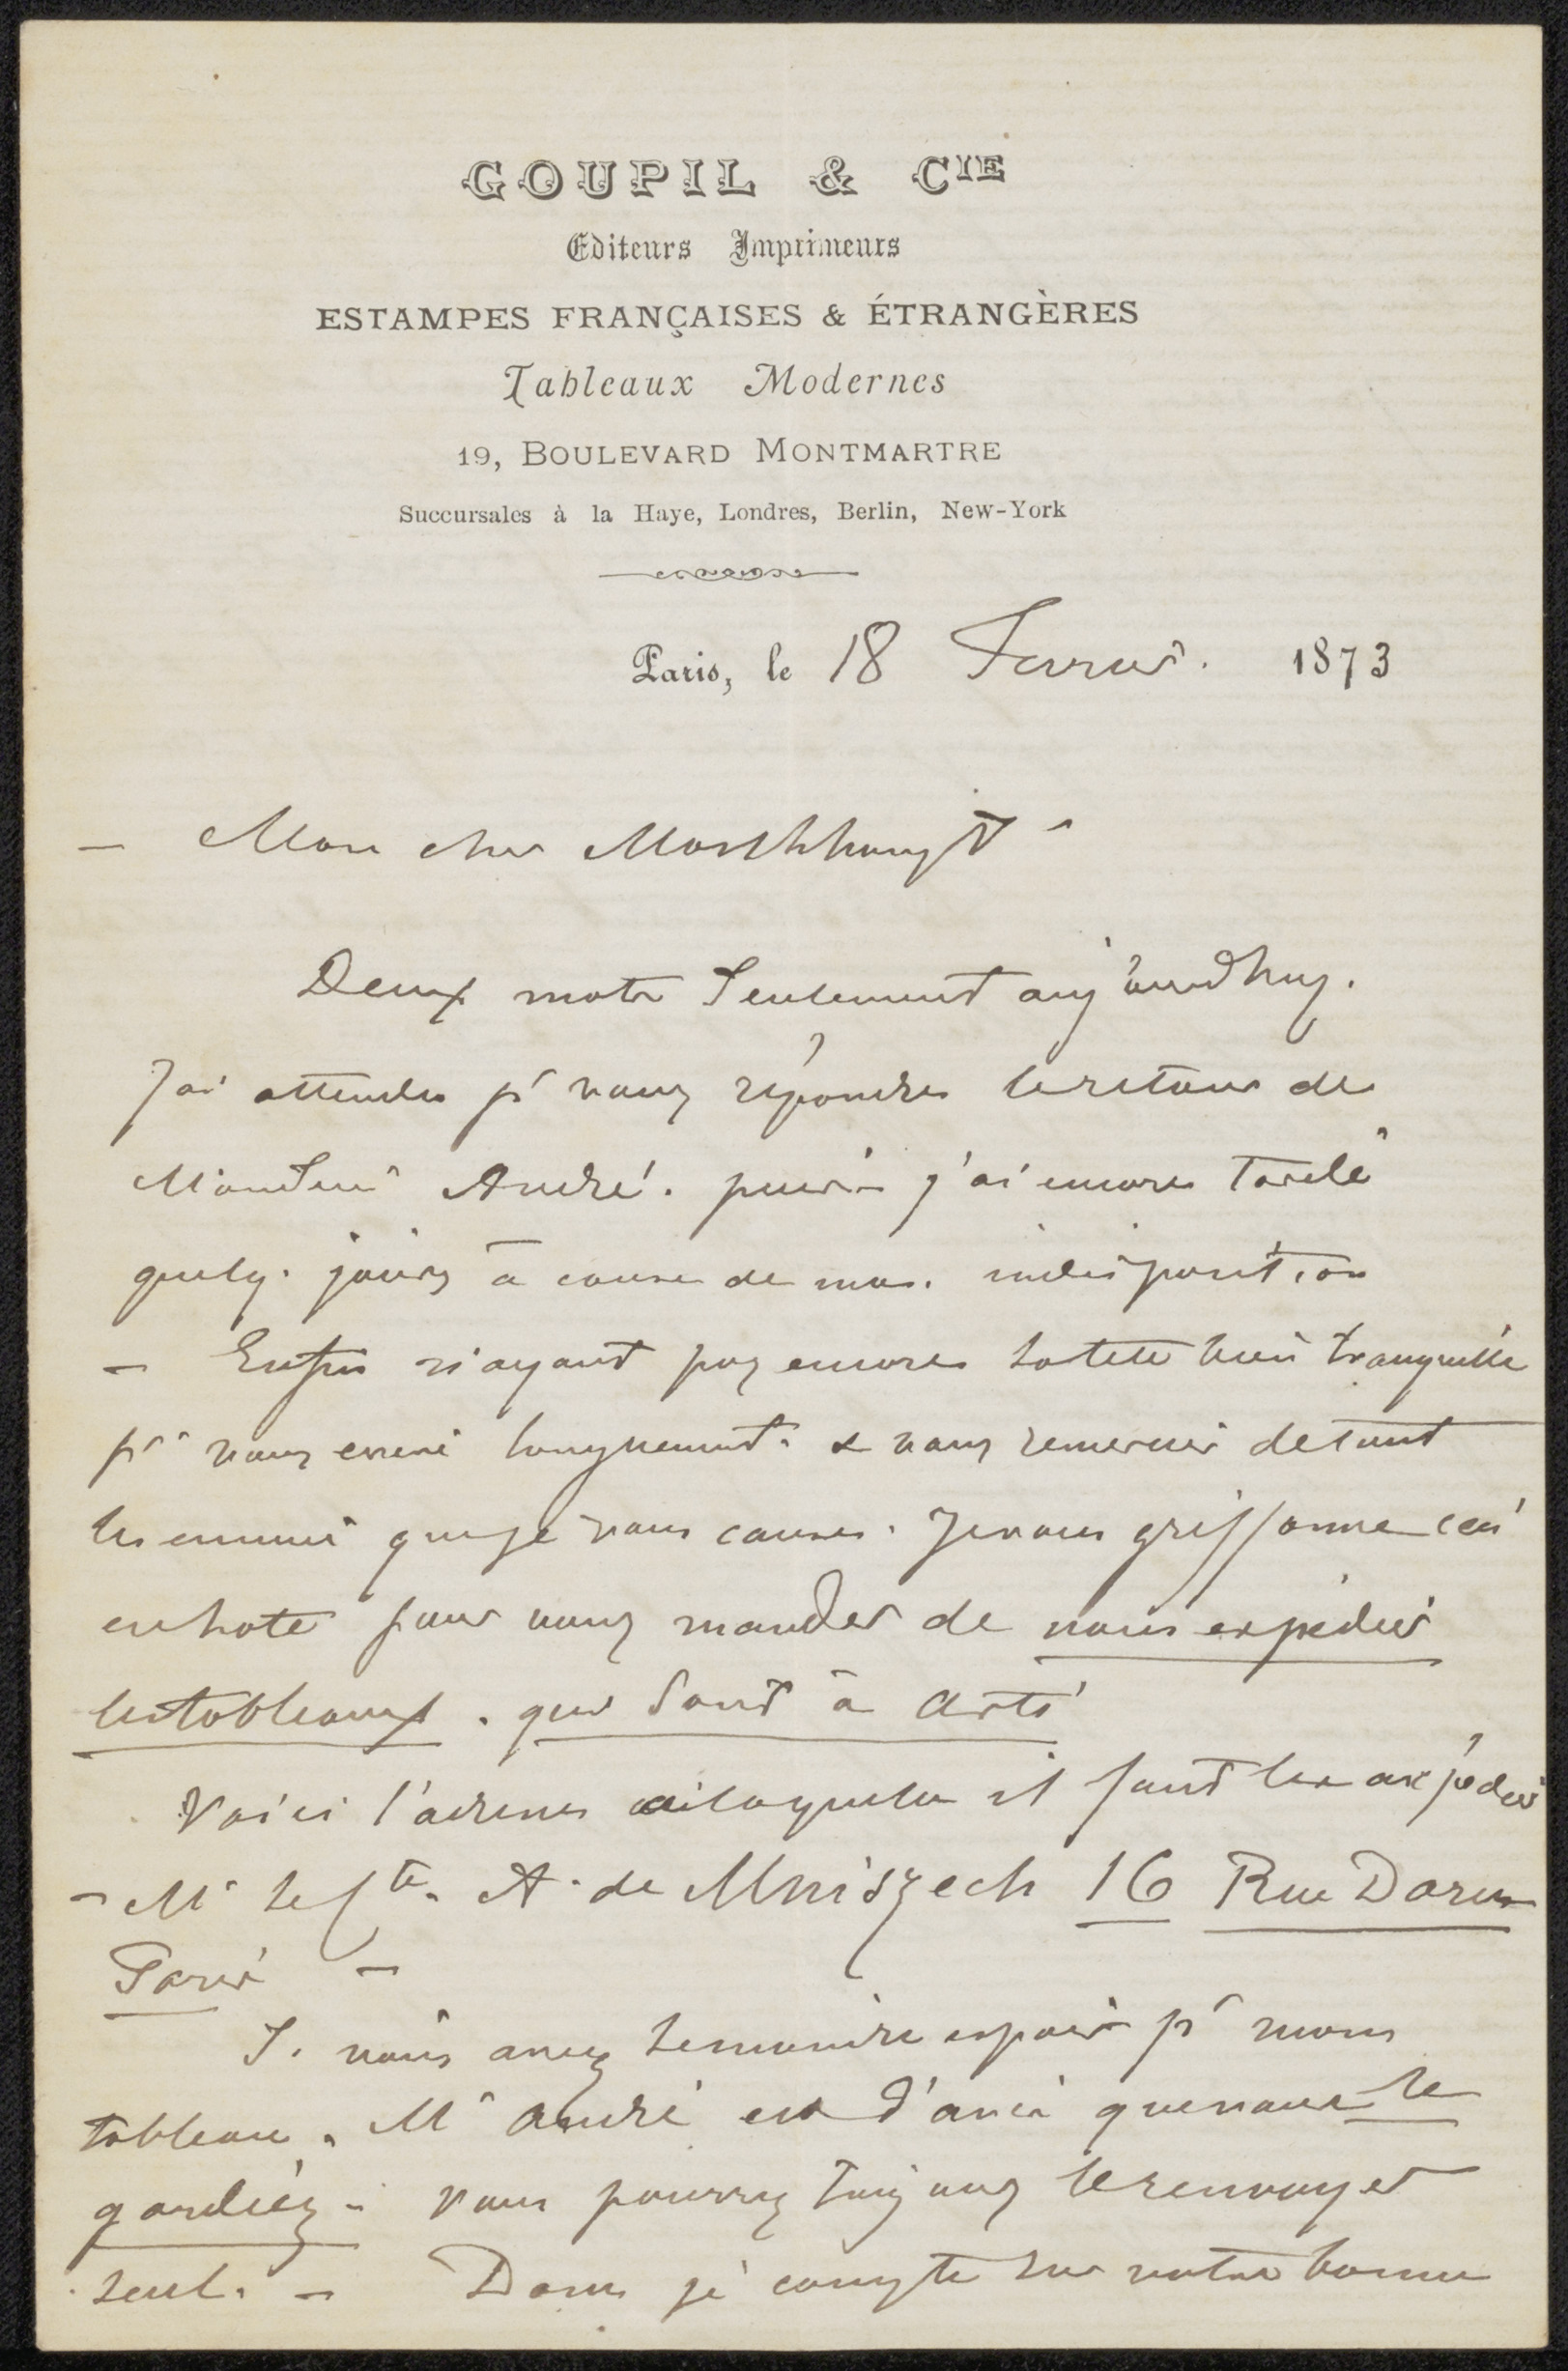 GOUPIL & CIE
Editeurs Imprimeurs
ESTAMPES FRANÇAISES & ÉTRANGÈRES
Tableaux Modernes
19, BOULEVARD MONTMARTRE
Succursales à la Haye, Londres, Berlin, New-York
Paris, le 18 1873
– Mon cher
Deux mots Seulement auj'ourdhuy.
J'ai attendu pr vous répondre le retour de
Monsieur André. puis j'ai encore tardé
quelq. jours à cause de mon indisposition
– Enfin n'ayant pas encore la tete bien tranquille
pr vous ecrire longuement. & vous remercier de tout
les ennuis que je vous cause. Je vous griffonne ceci
en hate pour vous mander de nous expedier
les tableaux. qui Sont à Arti
Voici l'adresse à laquelle il faut les expedier
– Mr le Cte. A. de Mniszech 16 Rue Daru
Paris –
S. vous avez le moindre espoir pr mon
tableau. Mr André est d'avis que vous le
gardiez – vous pourrez toujours le renvoyer
seul. – Donc je compte sur votre bonne